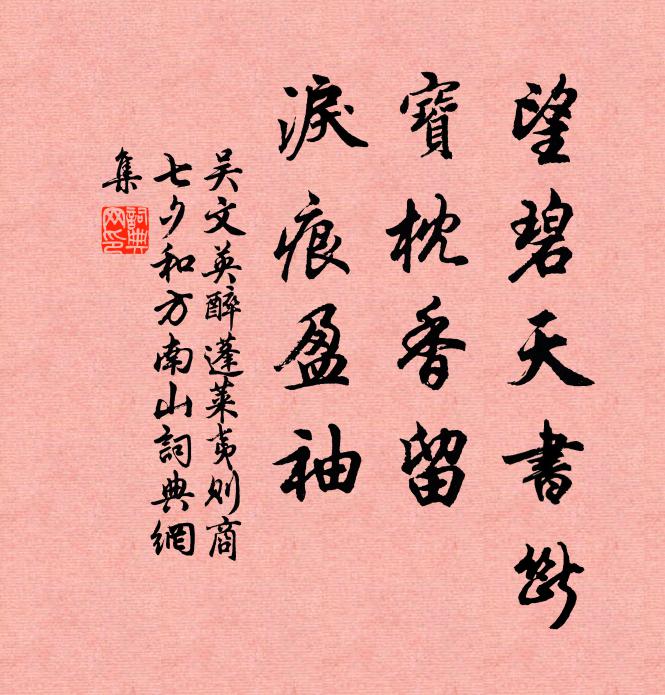 望碧天書斷
寶枕香留
淚痕盈袖
吴文英醉蓬萊夷则商
七夕和方南山詞典網
集
詞典網印